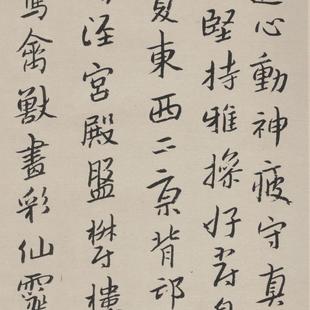 逸心動神疲守真
堅持雅操好爵自
夏東西二京背邙
涇宮殿盤欝樓
寫禽獸畫彩仙靈